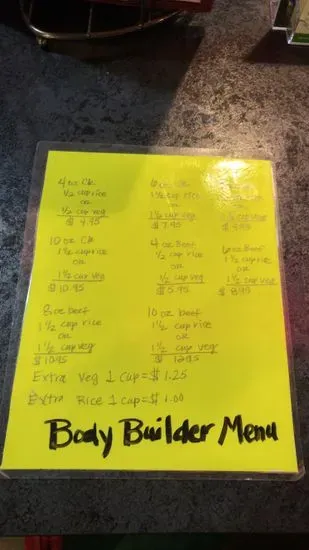 4 oz Ck
1/2 cup rice
or
1/2 cup veg
$ 4.95
oz Ck
1 1/2 cup rice
or
1 1/2 cup veg
$ 7.95
10 oz Ck
1 1/2 cup rice
or
1 1/2 cup veg
$ 10.95
4 oz Beef
1/2 cup rice
or
1/2 cup veg
$ 5.95
6 oz Beef
1 1/2 cup rice
or
1 1/2 cup veg
$ 8.95
8 oz beef
1 1/2 cup rice
or
1 1/2 cup veg
$ 10.95
10 oz beef
1 1/2 cup rice
or
1 1/2 cup veg
$ 12.95
Extra Veg 1 cup = $ 1.25
Extra Rice 1 cup = $ 1.00
Body Builder Menu